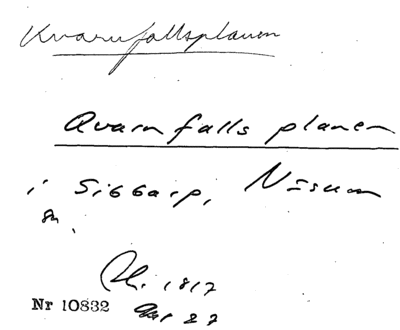 Kvarnfallsplanen
Qvarnfalls planen
i Sibbarp, Nösum
sn.
1817
Nr 10832 27